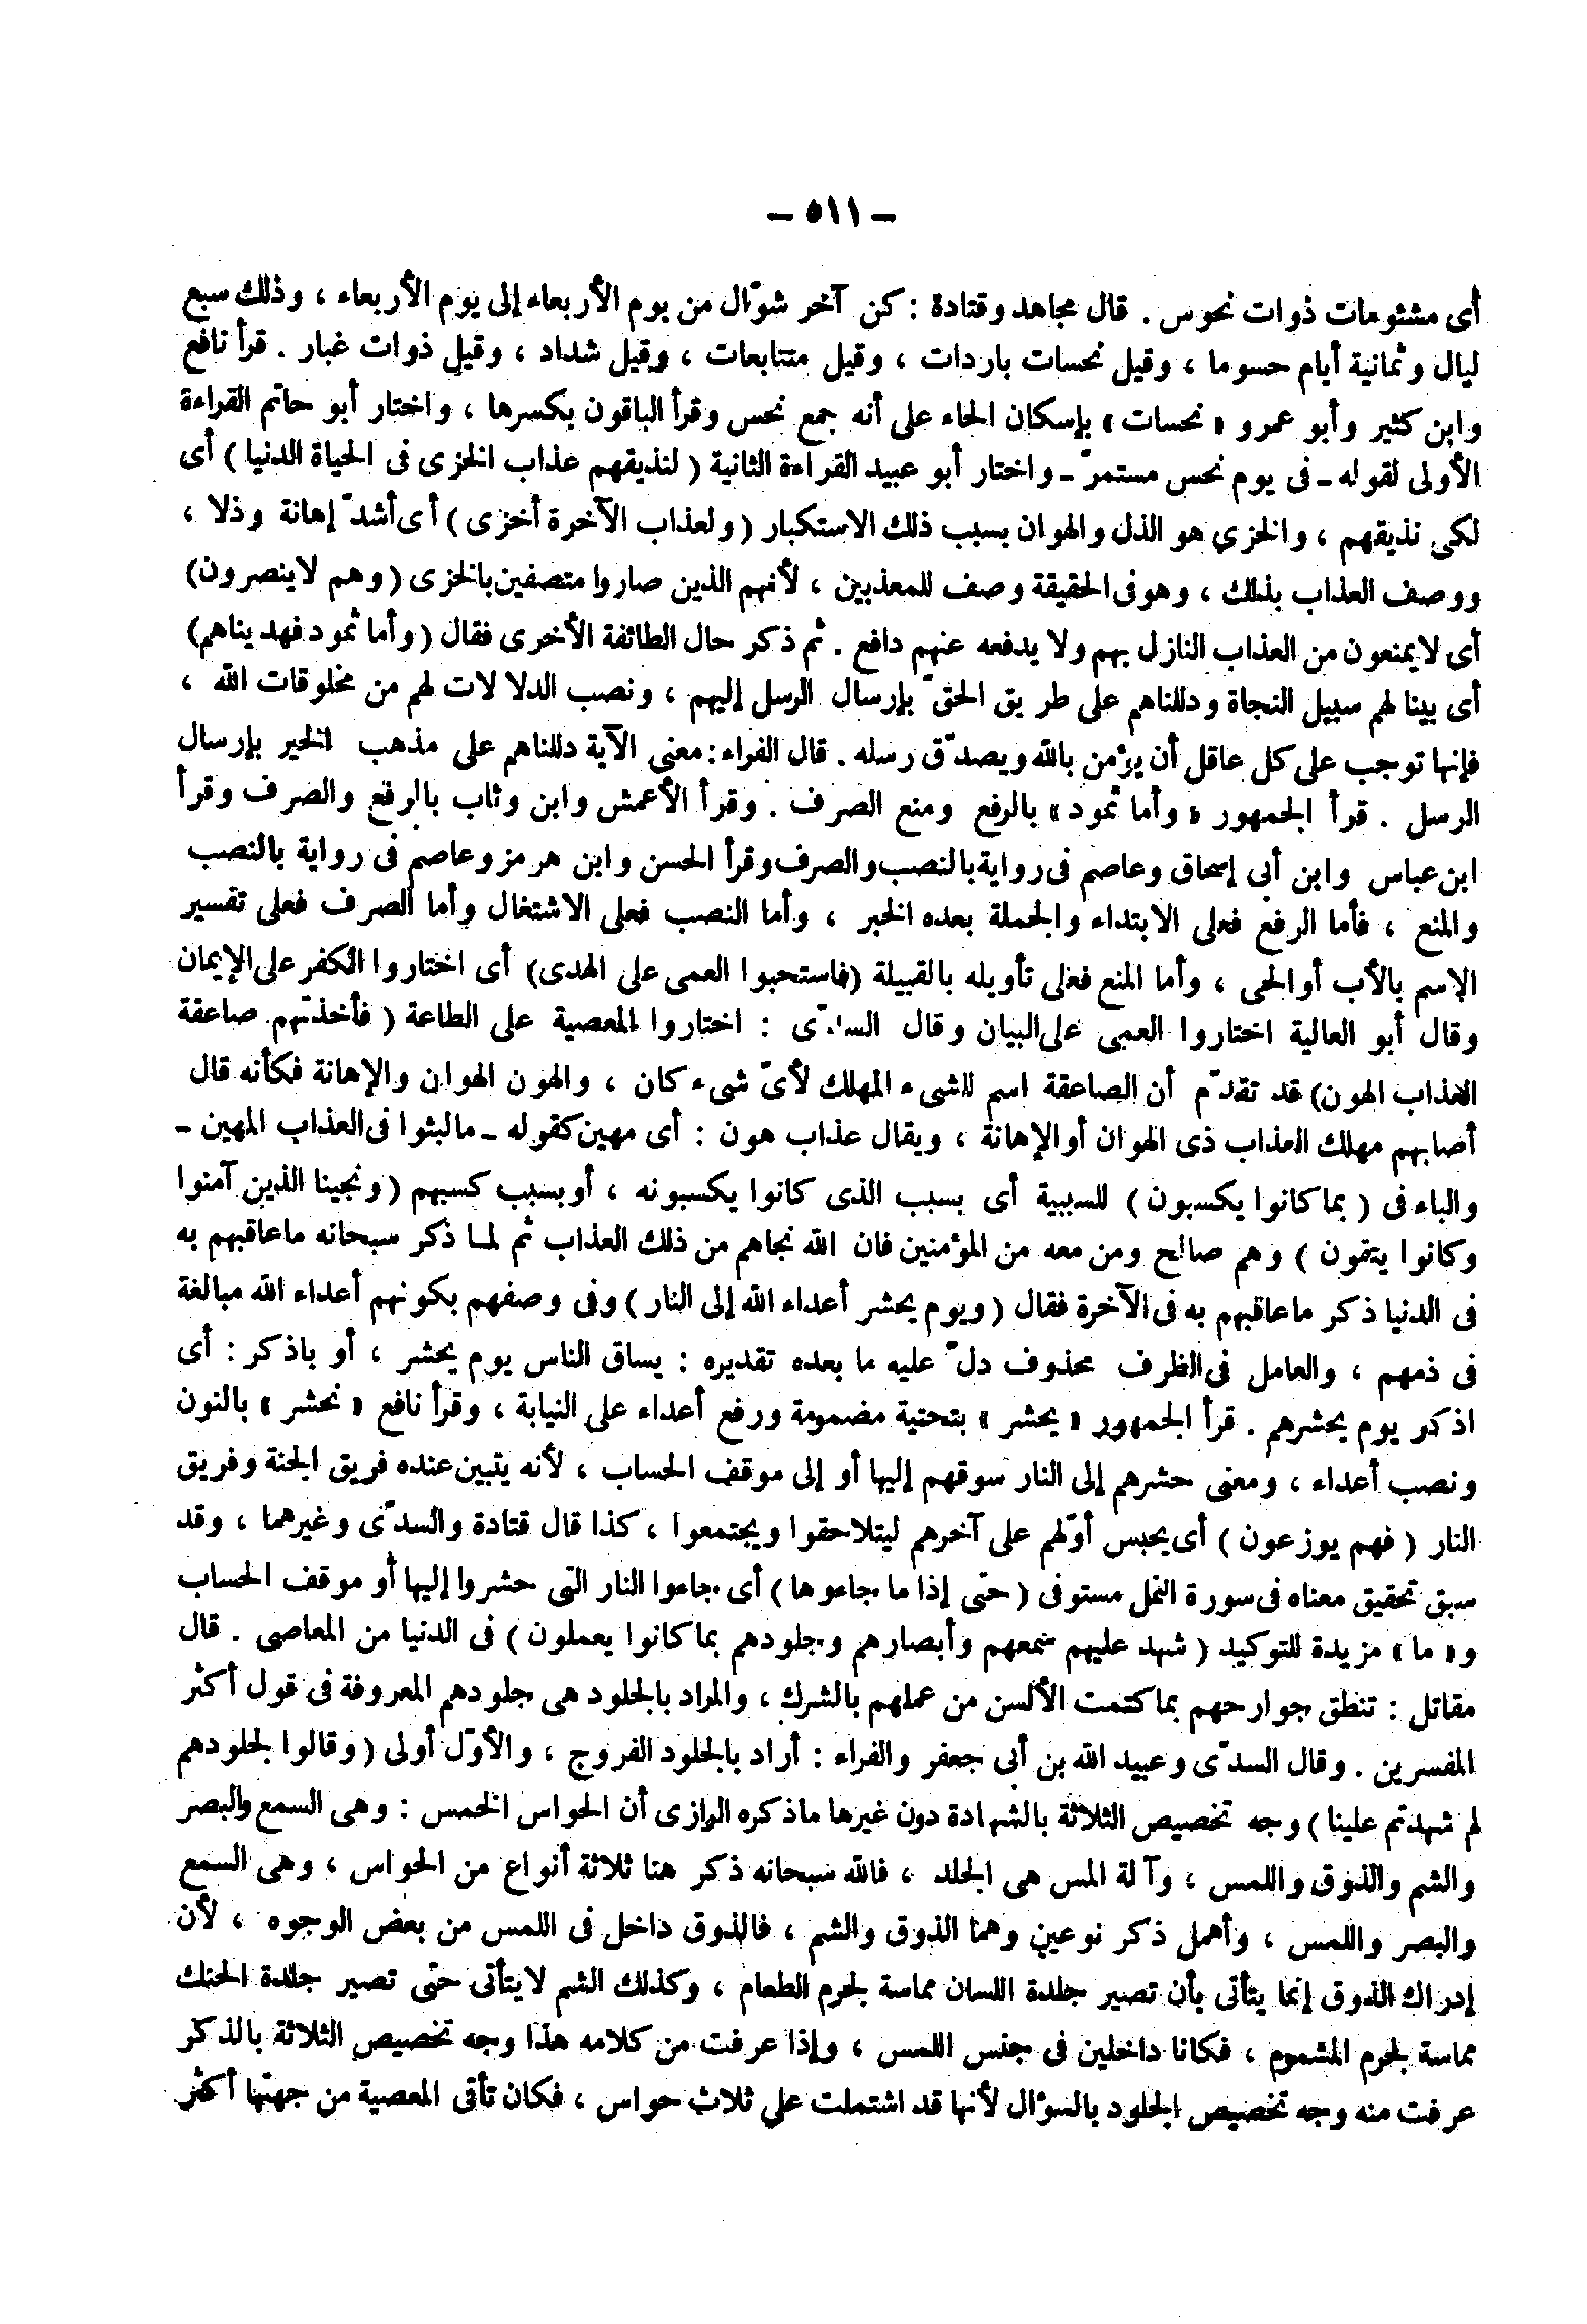 — ٥١١ —
أى مشئومات ذوات نحوس . قال مجاهد وقتادة : كن آخر شوّال من يوم الأربعاء إلى يوم الأربعاء ، وذلك سبع
ليال وثمانية أيام حسوما ، وقيل نحسات باردات ، وقيل متتابعات ، وقيل شداد ، وقيل ذوات غبار . قرأ نافع
وابن كثير وأبو عمرو « نحسات » بإسكان الحاء على أنه جمع نحس وقرأ الباقون بكسرها ، واختار أبو حاتم القراءة
الأولى لقوله ـ فى يوم نحس مستمرّ ـ واختار أبو عبيد القراءة الثانية ( لنذيقهم عذاب الخزى فى الحياة الدنيا ) أى
لكى نذيقهم ، والخزي هو الذل والهوان بسبب ذلك الاستكبار ( ولعذاب الآخرة أخزى ) أى أشدّ إهانة وذلا ،
ووصف العذاب بذلك ، وهو فى الحقيقة وصف للمعذبين ، لأنهم الذين صاروا متصفين بالخزى ( وهم لاينصرون)
أى لايمنعون من العذاب النازل بهم ولا يدفعه عنهم دافع . ثم ذكر حال الطائفة الأخرى فقال ( وأما ثمود فهديناهم)
أى بينا لهم سبيل النجاة ودللناهم على طريق الحقّ بإرسال الرسل إليهم ، ونصب الدلالات لهم من مخلوقات الله ،
فإنها توجب على كل عاقل أن يؤمن بالله ويصدّق رسله . قال الفراء : معنى الآية دللناهم على مذهب الخير بإرسال
الرسل . قرأ الجمهور « وأما ثمود » بالرفع ومنع الصرف . وقرأ الأعمش وابن وثاب بالرفع والصرف وقرأ
ابن عباس وابن أبى إسحاق وعاصم فى رواية بالنصب والصرف وقرأ الحسن وابن هرمز وعاصم فى رواية بالنصب
والمنع ، فأما الرفع فعلى الابتداء والجملة بعده الخبر ، وأما النصب فعلى الاشتغال وأما الصرف فعلى تفسير
الإسم بالأب أو الحى ، وأما المنع فعلى تأويله بالقبيلة (فاستحبوا العمى على الهدى) أى اختاروا الكفر على الإيمان
وقال أبو العالية اختاروا العمى على البيان وقال السدّى : اختاروا المعصية على الطاعة ( فأخذتهم صاعقة
العذاب الهون) قد تقدّم أن الصاعقة اسم للشىء المهلك لأىّ شىء كان ، والهون الهوان والإهانة فكأنه قال
أصابهم مهلك العذاب ذى الهوان أو الإهانة ، ويقال عذاب هون : أى مهين كقوله ـ مالبثوا فى العذاب المهين ـ
والباء فى ( بما كانوا يكسبون ) للسببية أى بسبب الذى كانوا يكسبونه ، أو بسبب كسبهم ( ونجينا الذين آمنوا
وكانوا يتقون ) وهم صالح ومن معه من المؤمنين فان الله نجاهم من ذلك العذاب ثم لما ذكر سبحانه ماعاقبهم به
فى الدنيا ذكر ماعاقبهم به فى الآخرة فقال ( ويوم يحشر أعداء الله إلى النار ) وفى وصفهم بكونهم أعداء الله مبالغة
فى ذمهم ، والعامل فى الظرف محذوف دلّ عليه ما بعده تقديره : يساق الناس يوم يحشر ، أو باذكر : أى
اذكر يوم يحشرهم . قرأ الجمهور « يحشر » بتحتية مضمومة ورفع أعداء على النيابة ، وقرأ نافع « نحشر » بالنون
ونصب أعداء ، ومعنى حشرهم إلى النار سوقهم إليها أو إلى موقف الحساب ، لأنه يتبين عنده فريق الجنة وفريق
النار ( فهم يوزعون ) أى يحبس أوّلهم على آخرهم ليتلاحقوا ويجتمعوا ، كذا قال قتادة والسدّى وغيرهما ، وقد
سبق تحقيق معناه فى سورة النمل مستوفى ( حتى إذا ما جاءوها ) أى جاءوا النار التى حشروا إليها أو موقف الحساب
و« ما » مزيدة للتوكيد ( شهد عليهم سمعهم وأبصارهم وجلودهم بما كانوا يعملون ) فى الدنيا من المعاصى . قال
مقاتل : تنطق جوارحهم بما كتمت الألسن من عملهم بالشرك ، والمراد بالجلود هى جلودهم المعروفة فى قول أكثر
المفسرين . وقال السدّى وعبيد الله بن أبى جعفر والفراء : أراد بالجلود الفروج ، والأوّل أولى ( وقالوا لجلودهم
لم شهدتم علينا ) وجه تخصيص الثلاثة بالشهادة دون غيرها ماذكره الرازى أن الحواس الخمس : وهى السمع والبصر
والشم والذوق واللمس ، وآلة المس هى الجلد ، فالله سبحانه ذكر هنا ثلاثة أنواع من الحواس ، وهى السمع
والبصر واللمس ، وأهمل ذكر نوعين وهما الذوق والشم ، فالذوق داخل فى اللمس من بعض الوجوه ، لأن
إدراك الذوق إنما يتأتى بأن تصير جلدة اللسان مماسة لجرم الطعام ، وكذلك الشم لايتأتى حتى تصير جلدة الحنك
مماسة لجرم المشموم ، فكانا داخلين فى جنس اللمس ، وإذا عرفت من كلامه هذا وجه تخصيص الثلاثة بالذكر
عرفت منه وجه تخصيص الجلود بالسؤال لأنها قد اشتملت على ثلاث حواس ، فكان تأتى المعصية من جهتها أكثر